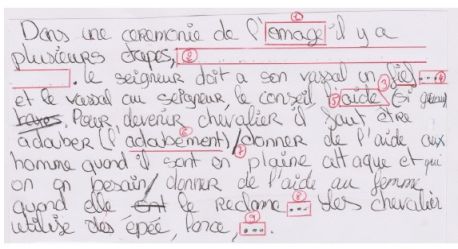 ①
Dans une ceremonie de l'omage il y a
plusieurs étapes, ②
. le seigneur doit a son vassal un fief ... ④
et le vassal au seigneur le conseil ⑤ l'aide ③ (si
. Pour devenir chevalier il faut être
adaber (l'adabement) / donner de l'aide aux ⑥ ⑦
homme quand il sont on plaine attaque et qui
on on besain / donner de l'aide au femme
quand elle ont le reclame ⑧ ... des chevalier
utilise des épée, lance, ⑨ ...